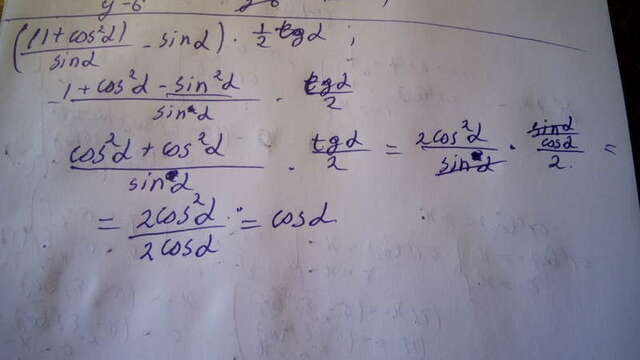 y-6 y-6
((1+cos²α)/sinα - sinα) · 1/2 tgα ;
(1+cos²α - sin²α)/sinα · tgα/2
(cos²α + cos²α)/sinα · tgα/2 = 2cos²α/sinα · (sinα/cosα)/2 =
= 2cos²α/2cosα = cosα